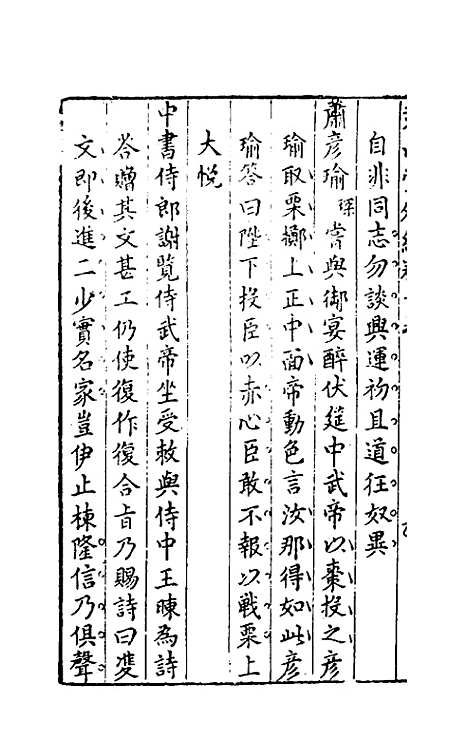 自非同志勿談興運初且道狂奴異
蕭彥瑜琛嘗與御宴醉伏筵中武帝以棗投之彥
瑜取栗擲上正中面帝動色言汝那得如此彥
瑜答曰陛下投臣以赤心臣敢不報以戰栗上
大悅
中書侍郎謝覧侍武帝坐受敕與侍中王暕為詩
答贈其文甚工仍使復作復合旨乃賜詩曰雙
文即後進二少實名家豈伊止棟隆信乃俱聲